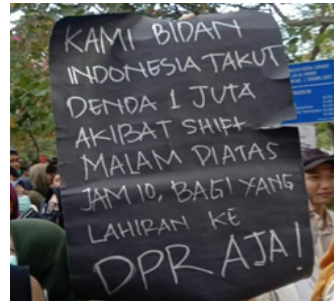 KAMI BIDAN
INDONESIA TAKUT
DENDA 1 JUTA
AKIBAT SHIFT
MALAM DIATAS
JAM 10, BAGI YANG
LAHIRAN KE
DPR AJA!